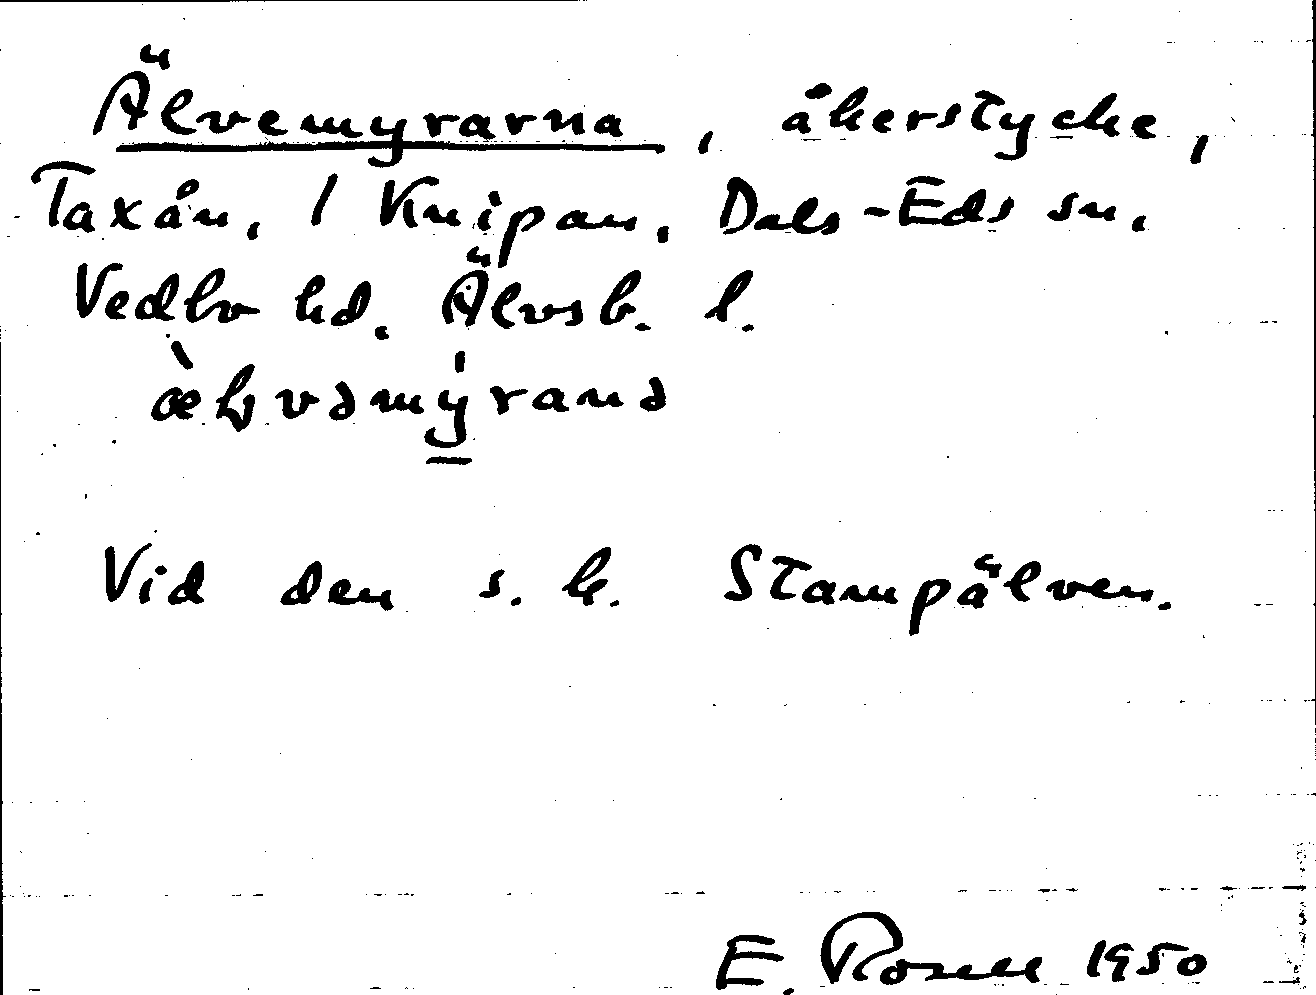 Älvemyrarna, åkerstycke,
Taxån, 1 Knipan, Dals-Eds sn.
Vedbo hd. Älvsb. l.
Vid den s.k. Stampälven.
E. Rosell 1950